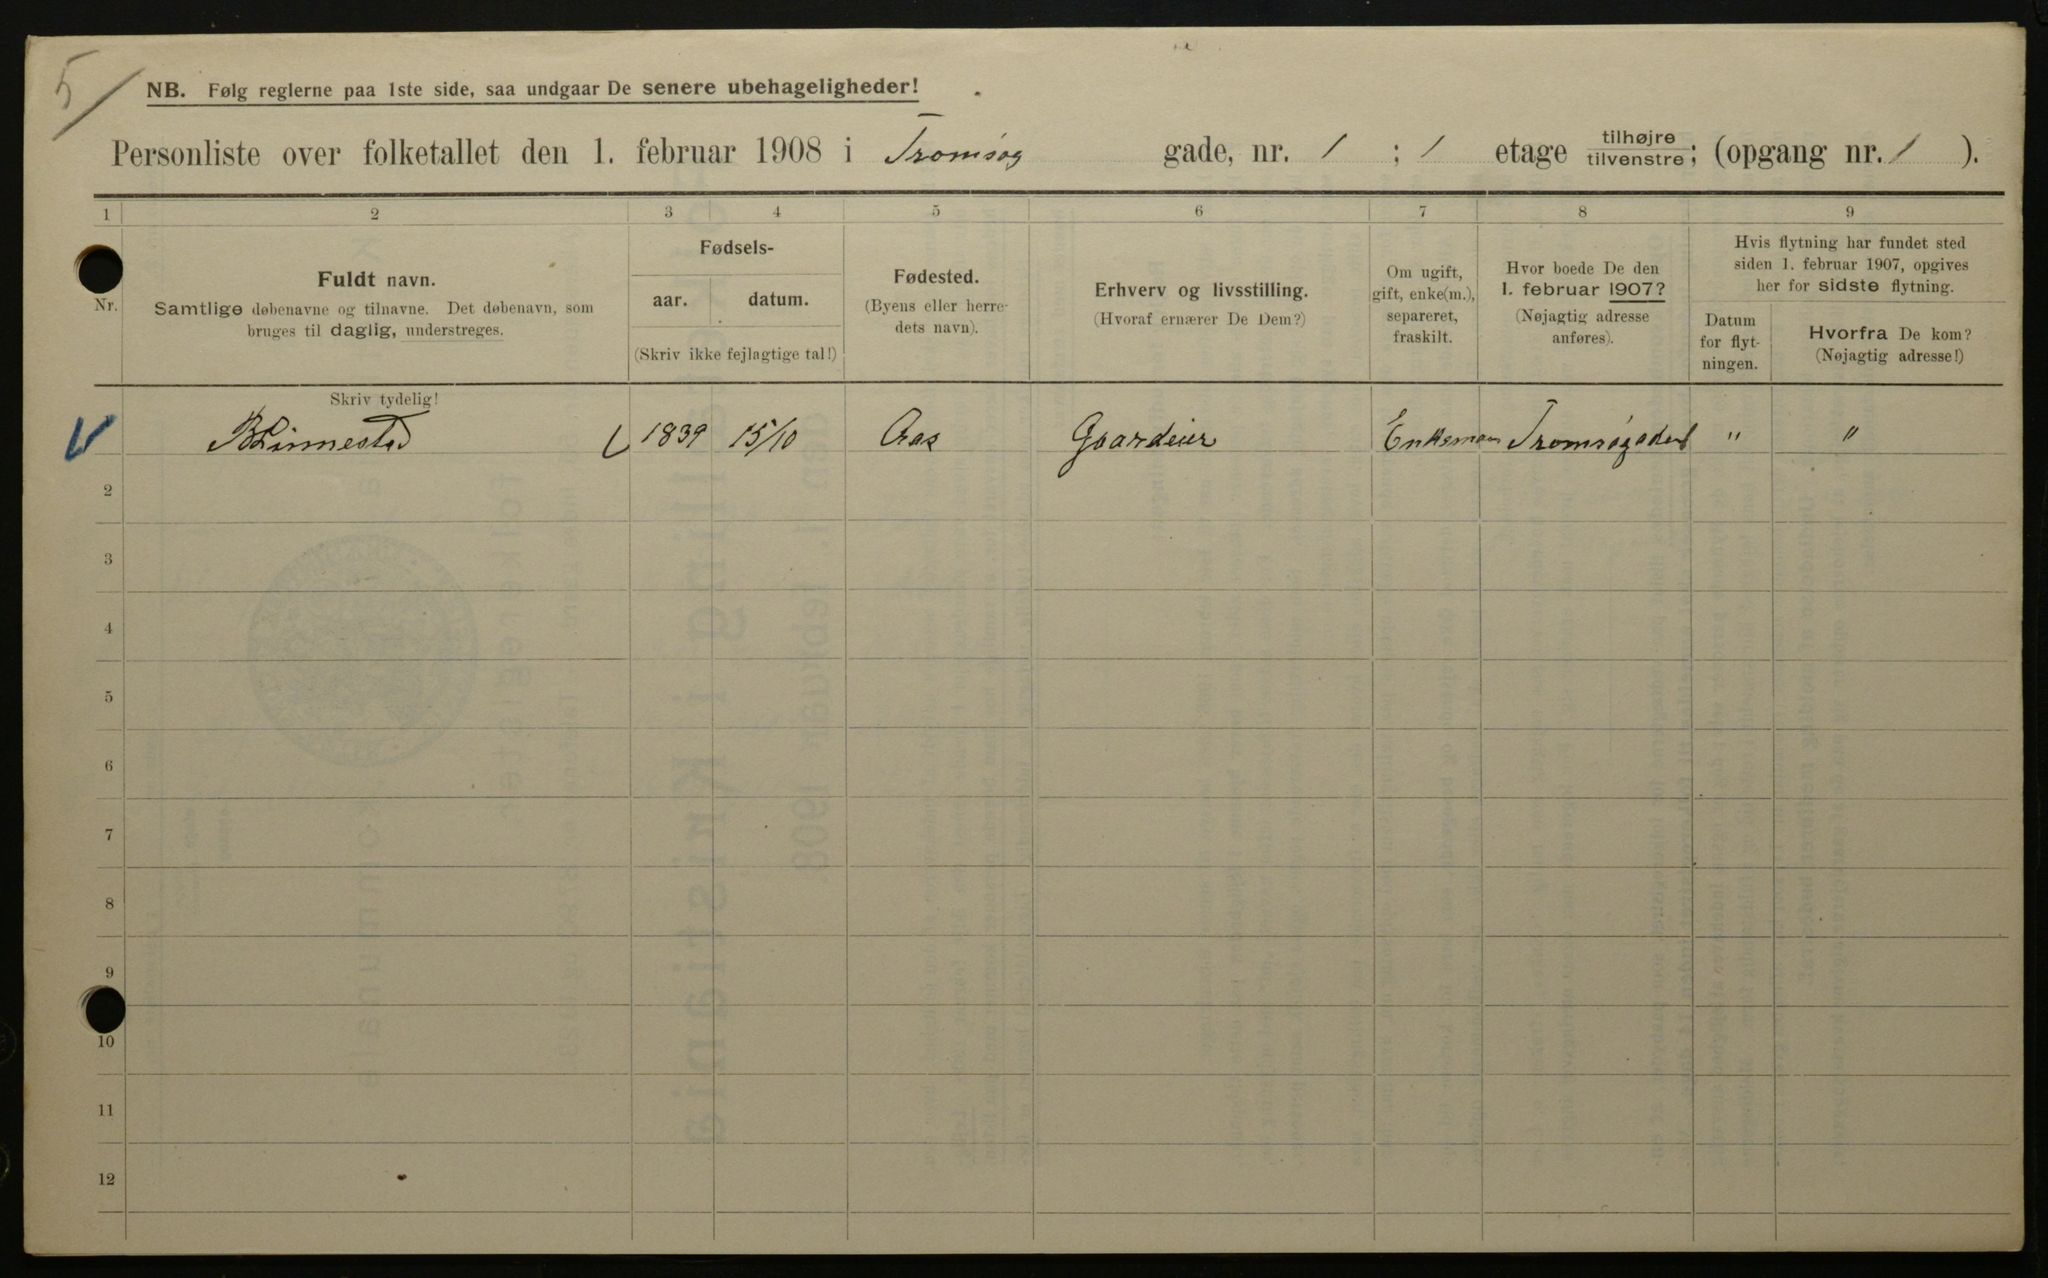 5/
NB. Følg reglerne paa 1ste side, saa undgaar De senere ubehageligheder!
Personliste over folketallet den 1. februar 1908 i Tromsøg gade, nr. 1 ; 1 etage tilhøjre tilvenstre; (opgang nr. 1 ).
1 2 3 4 5 6 7 8 9
Nr.
Fuldt navn.
Samtlige døbenavne og tilnavne. Det døbenavn, som
bruges til daglig, understreges.
Fødsels-
aar. datum.
(Skriv ikke fejlagtige tal!)
Fødested.
(Byens eller herre-
dets navn).
Erhverv og livsstilling.
(Hvoraf ernærer De Dem?)
Om ugift,
gift, enke(m.),
separeret,
fraskilt.
Hvor boede De den
1. februar 1907?
(Nøjagtig adresse
anføres).
Hvis flytning har fundet sted
siden 1. februar 1907, opgives
her for sidste flytning.
Datum
for flyt-
ningen.
Hvorfra De kom?
(Nøjagtig adresse!)
Skriv tydelig!
B Linnestad 1839 15/10 Aas Gaardeier Enkeman Tromsøgaden 1 " "
2
3
4
5
6
7
8
9
10
11
12